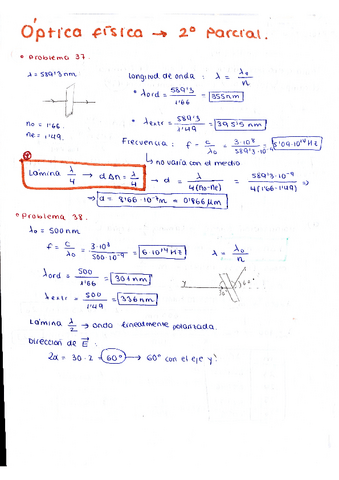 Óptica física → 2º parcial.
• Problema 37.
λ = 589'3 nm
no = 1'66.
ne = 1'49.
Longitud de onda : λ = λ₀/n
* λord = 589'3/1'66 = 355 nm
* λextr = 589'3/1'49 = 395'5 nm
Frecuencia : f = c/λ₀ = 3·10⁸/589'3·10⁻⁹ = 5'09·10¹⁴ Hz
↳ no varía con el medio
Lámina λ/4 → d Δn = λ/4 → d = λ/4(no-ne) = 589'3·10⁻⁹/4(1'66-1'49) ⇒
⇒ d = 8'66·10⁻⁷ m = 0'866 μm
• Problema 38.
λ₀ = 500 nm
f = c/λ₀ = 3·10⁸/500·10⁻⁹ = 6·10¹⁴ Hz
λ = λ₀/n
λord = 500/1'66 = 301 nm
λextr = 500/1'49 = 336 nm
y
Lámina λ/2 → onda linealmente polarizada.
Dirección de E :
2α = 30·2 = 60° → 60° con el eje y.